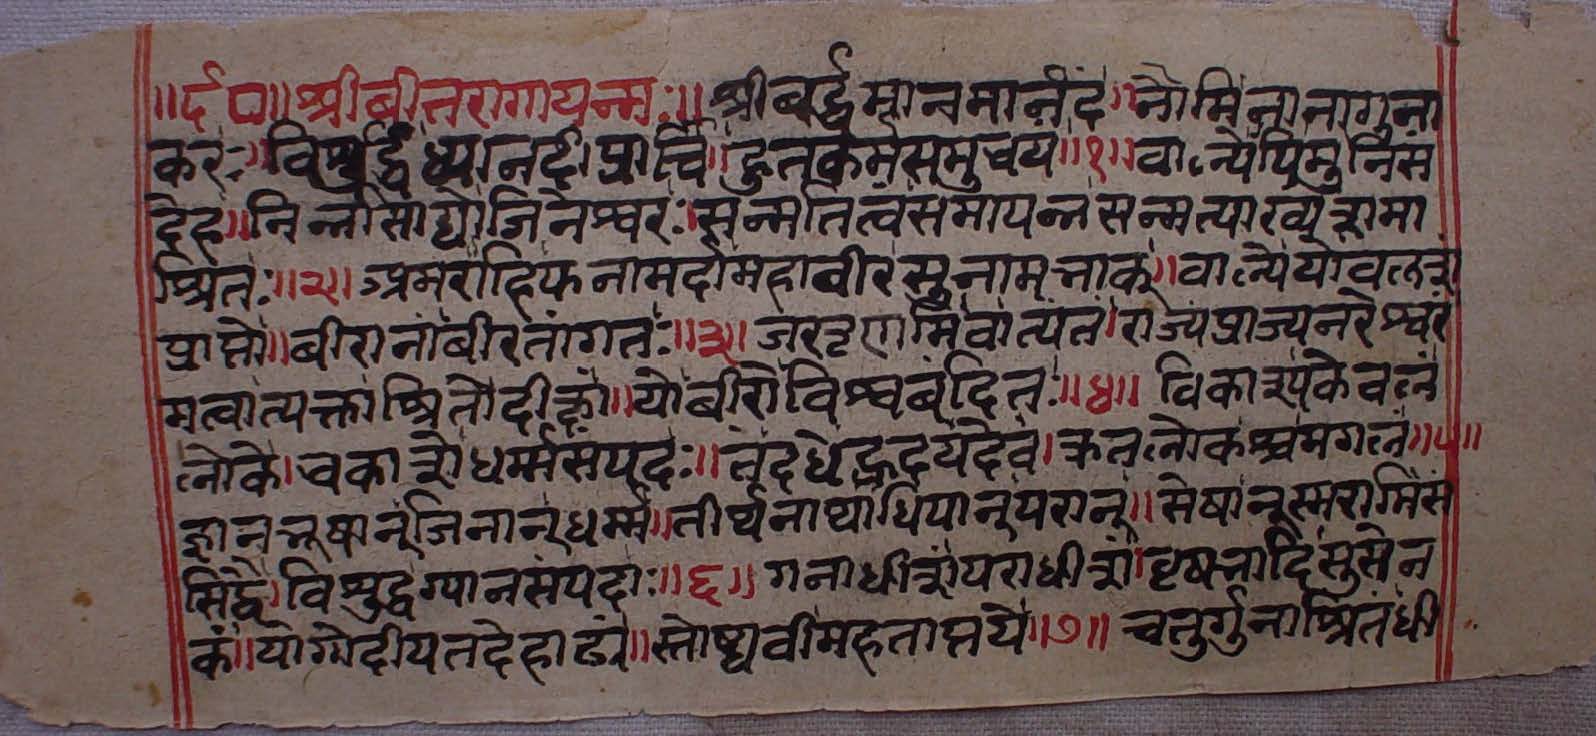 ॥र्द०॥श्रीबीतरागायन्मः॥श्रीबर्द्धमानमानंदं॥नौमिनानागुना
करं॥विशुद्धिंध्यानदीप्तार्चि॥हुतकर्मसमुचयं॥१॥वाल्येपिमुनिसं
देह॥निर्न्नासाद्योजिनेश्वरः।सन्मतित्वंसमायन्नसन्मत्याख्यत्रामा
श्रितः॥२॥अमराहिफनामर्दामहावीरसुनामभाक्॥वाल्येयोवलत्रा
प्राप्तो॥बीरानांबीरतांगतः॥३॥जरतृणामिवात्यंतं।राज्यंप्राज्यनरेश्वरं
मत्वात्यक्ताश्रितोदीक्षां॥योबीरोविश्वबंदितः॥४॥विकाश्पकेवलं
लोके।चकात्रोधर्म्मसंपदः॥तंदधेहृदयेदेवं।क्रतलोकश्चमगलं॥५॥
ज्ञानभूषान्जिनान्धर्म्म॥तीर्थनाथाधिपान्परान्॥सेषान्स्मरामिसं
सिद्धे।विशुद्धग्यानसंपदाः॥६॥गनाधीत्रांपराधीत्रां।वृषभादिसुसेन
कं॥योग्मोदीयतदेहाढ्यं॥स्तोष्य्रवीमहताप्तये॥७॥चतुर्गुनाश्रितंधी